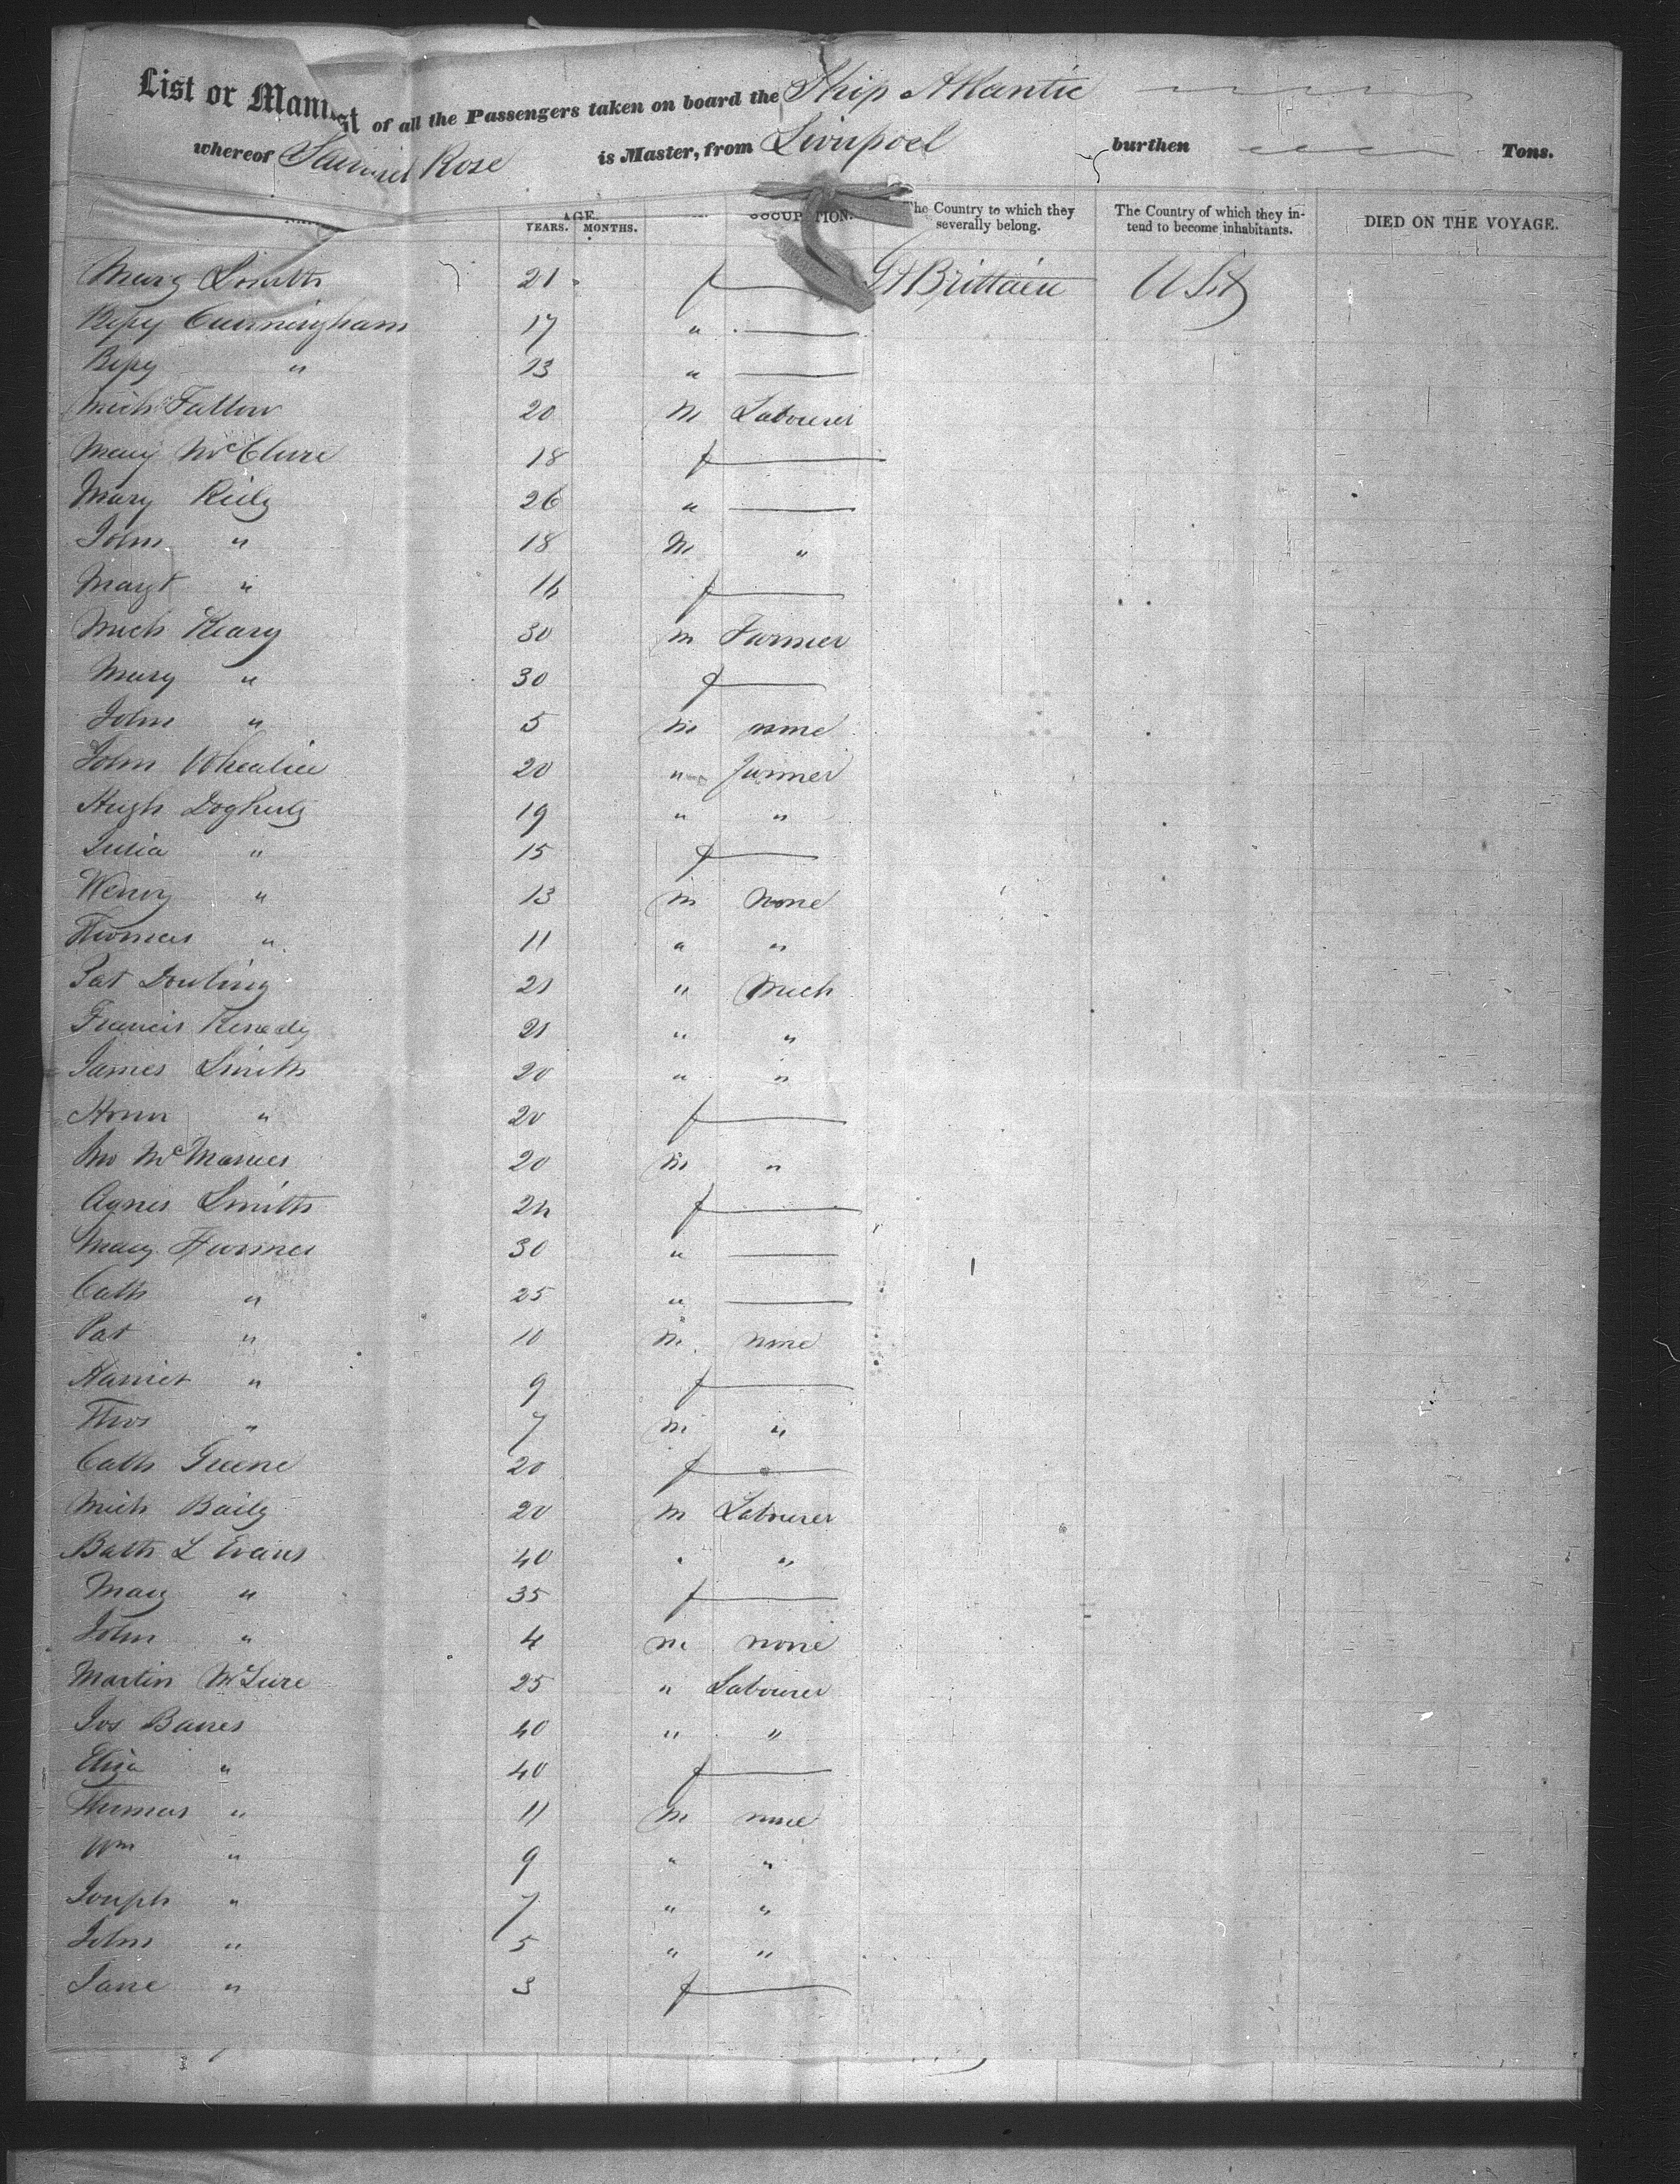 List or Manifest of all the Passengers taken on board the Ship Atlantic
whereof Samuel Rose is Master, from Liverpool burthen Tons.
AGE. YEARS. MONTHS. OCCUPATION. The Country to which they severally belong. The Country of which they intend to become inhabitants. DIED ON THE VOYAGE.
Marg Smith 21 f Gt Brittain U St
Bessy Cunningham 17 "
Bessy " 13 "
Mich Fallow 20 M Labourer
Mary McClure 18 f
Mary Reily 26 "
John " 18 M "
Margt " 16 f
Mich Keary 30 m Farmer
Mary " 30 f
John " 5 m none
John 20 " farmer
Hugh Dogherty 19 " "
Julia " 15 f
Henry " 13 m None
Thomas " 11 " "
Pat Dowling 21 " Mech
Francis Kenedy 21 " "
James Smith 20 " "
Honor " 20 f
Jno McManus 20 m "
Agnes Smith 24 f
Mary Farmer 30 "
Cath " 25 "
Pat " 10 m none
Harriet " 9 f
Thos " 7 m "
Cath Greene 20 f
Mich Baily 20 m Labourer
Bath L Evans 40 " "
Mary " 35 f
John " 4 m none
Martin McLure 25 " Labourer
Jos Banes 40 " "
Eliza " 40 f
Thomas " 11 m none
Wm " 9 " "
Joseph " 7 " "
John " 5 " "
Jane " 3 f